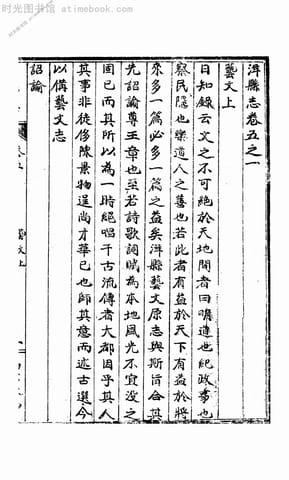 时光图书馆 atimebook.com
洱縣志卷五之一
藝文上
日知錄云文之不可絕於天地間者曰明道也紀政事也
察民隱也樂道人之善也若此者有益於天下有益於將
來多一篇必多一篇之益矣洱縣藝文原志與斯旨合其
先詔諭尊王章也至若詩歌詞賦為本地風光不宜没之
固已而其所以為一時絕唱千古流傳者大都因乎其人
其事非徒侈陳景物逞尚才華已也師其意而述古選今
以備藝文志
詔諭
藝文上